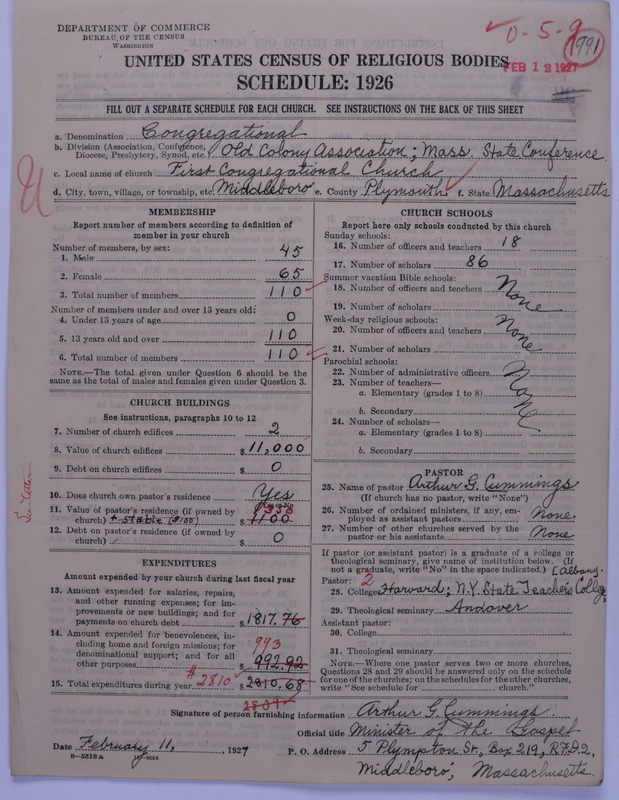 DEPARTMENT OF COMMERCE
BUREAU OF THE CENSUS
WASHINGTON
0-5-9
991
FEB 12 1927
UNITED STATES CENSUS OF RELIGIOUS BODIES
SCHEDULE: 1926
FILL OUT A SEPARATE SCHEDULE FOR EACH CHURCH. SEE INSTRUCTIONS ON THE BACK OF THIS SHEET
a. Denomination Congregational
b. Division (Association, Conference, Diocese, Presbytery, Synod, etc.) Old Colony Association; Mass. State Conference
c. Local name of church First Congregational Church
d. City, town, village, or township, etc. Middleboro e. County Plymouth f. State Massachusetts
MEMBERSHIP
Report number of members according to definition of
member in your church
Number of members, by sex:
1. Male 45
2. Female 65
3. Total number of members 110
Number of members under and over 13 years old:
4. Under 13 years of age 0
5. 13 years old and over 110
6. Total number of members 110
NOTE.—The total given under Question 6 should be
same as the total of males and females given under Question 3.
CHURCH BUILDINGS
See instructions, paragraphs 10 to 12
7. Number of church edifices 2
8. Value of church edifices $11,000
9. Debt on church edifices $ 0
10. Does church own pastor's residence Yes
11. Value of pastor's residence (if owned by
church) + Stable ($100) $1100
See letter
12. Debt on pastor's residence (if owned by
church) $ 0
EXPENDITURES
Amount expended by your church during last fiscal year
13. Amount expended for salaries, repairs,
and other running expenses; for im-
provements or new buildings; and for
payments on church debt $1817.76
14. Amount expended for benevolences, in-
cluding home and foreign missions; for
denominational support; and for all
other purposes 993 $992.92
15. Total expenditures during year $2810 $2810.68
CHURCH SCHOOLS
Report here only schools conducted by this church
Sunday schools:
16. Number of officers and teachers 18
17. Number of scholars 86
Summer vacation Bible schools:
18. Number of officers and teachers None
19. Number of scholars
Week-day religious schools:
20. Number of officers and teachers None
21. Number of scholars
Parochial schools:
22. Number of administrative officers None
23. Number of teachers—
a. Elementary (grades 1 to 8)
b. Secondary
24. Number of scholars—
a. Elementary (grades 1 to 8)
b. Secondary
PASTOR
25. Name of pastor Arthur G. Cummings
(If church has no pastor, write "None")
26. Number of ordained ministers, if any, em-
ployed as assistant pastors None
27. Number of other churches served by the
pastor or his assistants None
If pastor (or assistant pastor) is a graduate of a college or
theological seminary, give name of institution below. (If
not a graduate, write "No" in the space indicated.) (Albany.
Pastor: 2
28. College Harvard; N.Y. State Teachers College
29. Theological seminary Andover
Assistant pastor:
30. College
31. Theological seminary
NOTE.—Where one pastor serves two or more churches,
Questions 28 and 29 should be answered only on the schedule
for one of the churches; on the schedules for the other churches,
write "See schedule for church."
Signature of person furnishing information Arthur G. Cummings.
Official title Minister of the Gospel
Date February 11, 1927 P. O. Address 5 Plympton St., Box 219, R.F.D.2,
8—5518 a
Middleboro, Massachusetts.